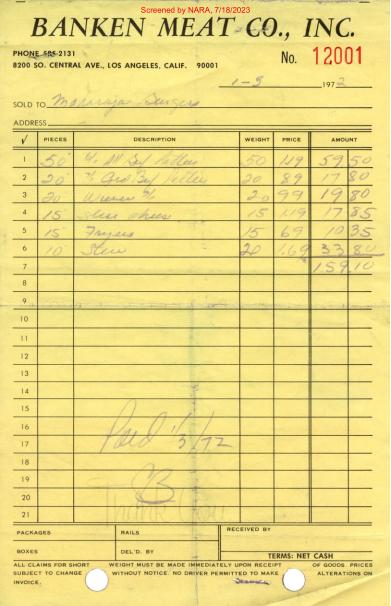 Screened by NARA, 7/18/2023
BANKEN MEAT CO., INC.
PHONE 585-2131
8200 SO. CENTRAL AVE., LOS ANGELES, CALIF. 90001
No. 12001
1-3 1972
SOLD TO Maharaja Burgers
ADDRESS
√ PIECES DESCRIPTION WEIGHT PRICE AMOUNT
1 50 All Beef Patties 50 119 59 50
2 20 Grd Beef Patties 20 89 17 80
3 20 20 99 19 80
4 15 15 119 17 85
5 15 Fryers 15 69 10 35
6 10 Stew 20 1.69 33 80
7 159.10
8
9
10
11
12
13
14
15
16
17
18
19
20
21
Paid 1/3/72
Thank You
PACKAGES RAILS RECEIVED BY
BOXES DEL'D. BY TERMS: NET CASH
ALL CLAIMS FOR SHORT WEIGHT MUST BE MADE IMMEDIATELY UPON RECEIPT OF GOODS. PRICES
SUBJECT TO CHANGE WITHOUT NOTICE. NO DRIVER PERMITTED TO MAKE ALTERATIONS ON
INVOICE.